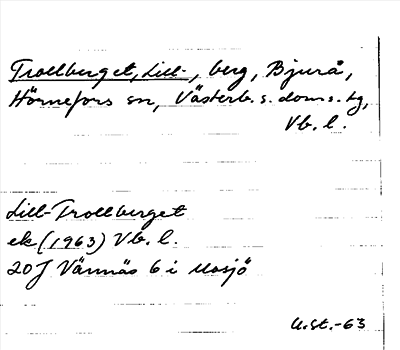 Trollberget, Lill-, berg, Bjurå,
Hörnefors sn, Västerb. s. doms. tg,
Vb. l.
Lill-Trollberget
ek (1963) Vb. l.
20J Vännäs 6 i Mosjö
U.St.-63